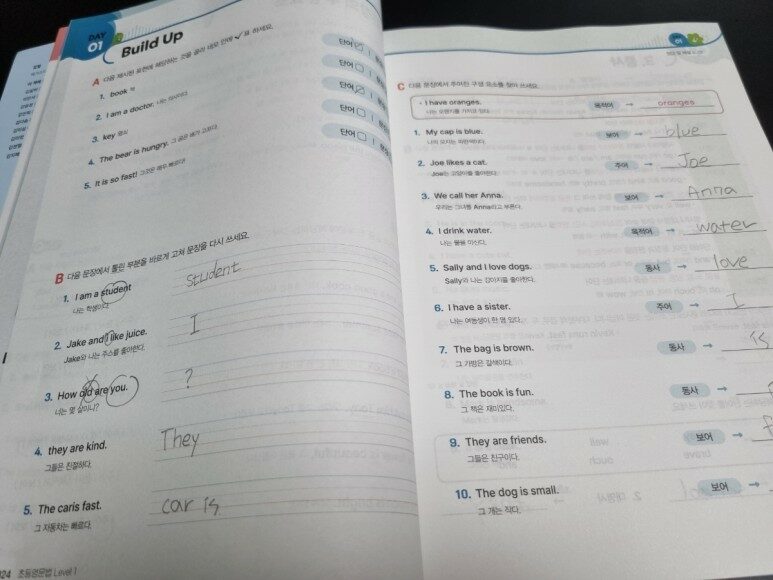 DAY
01
Build Up
A 다음 제시된 표현에 해당하는 것을 골라 네모 안에 ✓표 하세요.
1. book 책
단어
2. I am a doctor. 나는 의사이다.
단어
3. key 열쇠
단어
4. The bear is hungry. 그 곰은 배가 고프다.
단어
5. It is so fast! 그것은 매우 빠르다!
단어
B 다음 문장에서 틀린 부분을 바르게 고쳐 문장을 다시 쓰세요.
1. I am a student
student
나는 학생이다.
2. Jake and i like juice.
I
Jake와 나는 주스를 좋아한다.
3. How old are you.
?
너는 몇 살이니?
4. they are kind.
They
그들은 친절하다.
5. The caris fast.
car is
그 자동차는 빠르다.
24 초등영문법 Level 1
C 다음 문장에서 주어진 구성 요소를 찾아 쓰세요.
I have oranges. 목적어 → oranges
나는 오렌지를 가지고 있다.
1. My cap is blue. 보어 → blue
나의 모자는 파란색이다.
2. Joe likes a cat. 주어 → Joe
Joe는 고양이를 좋아한다.
3. We call her Anna. 보어 → Anna
우리는 그녀를 Anna라고 부른다.
4. I drink water. 목적어 → water
나는 물을 마신다.
5. Sally and I love dogs. 동사 → love
Sally와 나는 강아지를 좋아한다.
6. I have a sister. 주어 → I
나는 여동생이 한 명 있다.
7. The bag is brown. 동사 → is
그 가방은 갈색이다.
8. The book is fun. 동사 →
그 책은 재미있다.
9. They are friends. 보어 →
그들은 친구이다.
10. The dog is small. 보어 →
그 개는 작다.